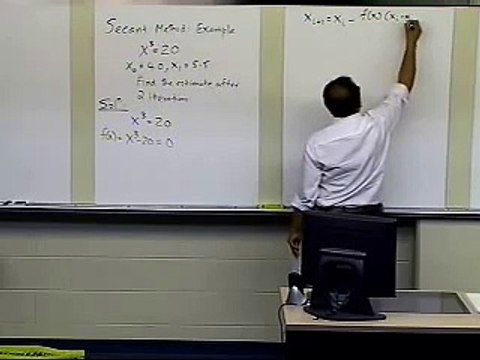 Secant Method: Example
x³=20
x₀=4.0, x₁=5.5
Find the estimate after
2 iterations
Sol
x³=20
f(x)=x³-20=0
xᵢ₊₁=xᵢ- f(xᵢ)(xᵢ-